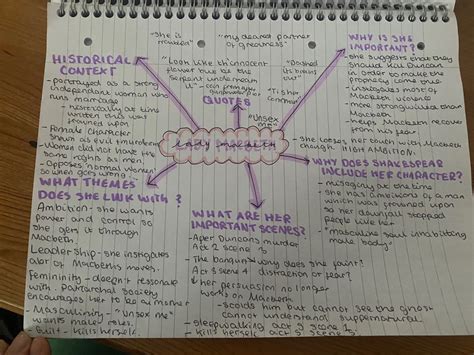 HISTORICAL
CONTEXT
- portrayed as a strong
independant woman who
runs marriage
- historically at time
written this was
frowned upon
- Female character
shown as evil/murdering
- Women did not have the
same rights as men
- opposes 'normal women'
so when goes wrong
- "she is
"my dearest partner
of greatness"
"Look like th'innocent
flower but be the
serpent under it"
"Dashed
its brains
"Tis her
command"
QUOTES
"Unsex
me"
Lady Macbeth
WHY IS SHE
IMPORTANT?
- she suggests that they
should kill Duncan
in order to make the
prophecy come true
- instigates most of
Macbeth violence
- more strong willed than
Macbeth
- helps Macbeth recover
from his fear.
- she looses her touch with Macbeth
though. HIGH AMBITION.
WHY DOES SHAKESPEAR
INCLUDE HER CHARACTER?
- misogyny at the time
- she has ambition of a man
which was frowned upon
so her downfall stopped
people like her
- "masculine soul inhabiting
male body"
WHAT THEMES
DOES SHE LINK WITH?
Ambition - she wants
power and control so
she gets it through
Macbeth.
Leadership - she instigates
alot of Macbeths moves.
Femininity - doesn't resonate
with patriarchal society
encourages her to be
- Masculinity - "unsex me"
wants male roles.
- Guilt - kills herself.
WHAT ARE HER
IMPORTANT SCENES?
- After Duncans murder
Act 2 scene
- The banquet
- why does she faint?
Act 3 scene 4
distraction or fear?
her persuasion no longer
works on Macbeth
- scolds him but cannot see the ghost
cannot understand supernatural.
- sleepwalking act 5 scene 1
- kills herself act 5 scene 5